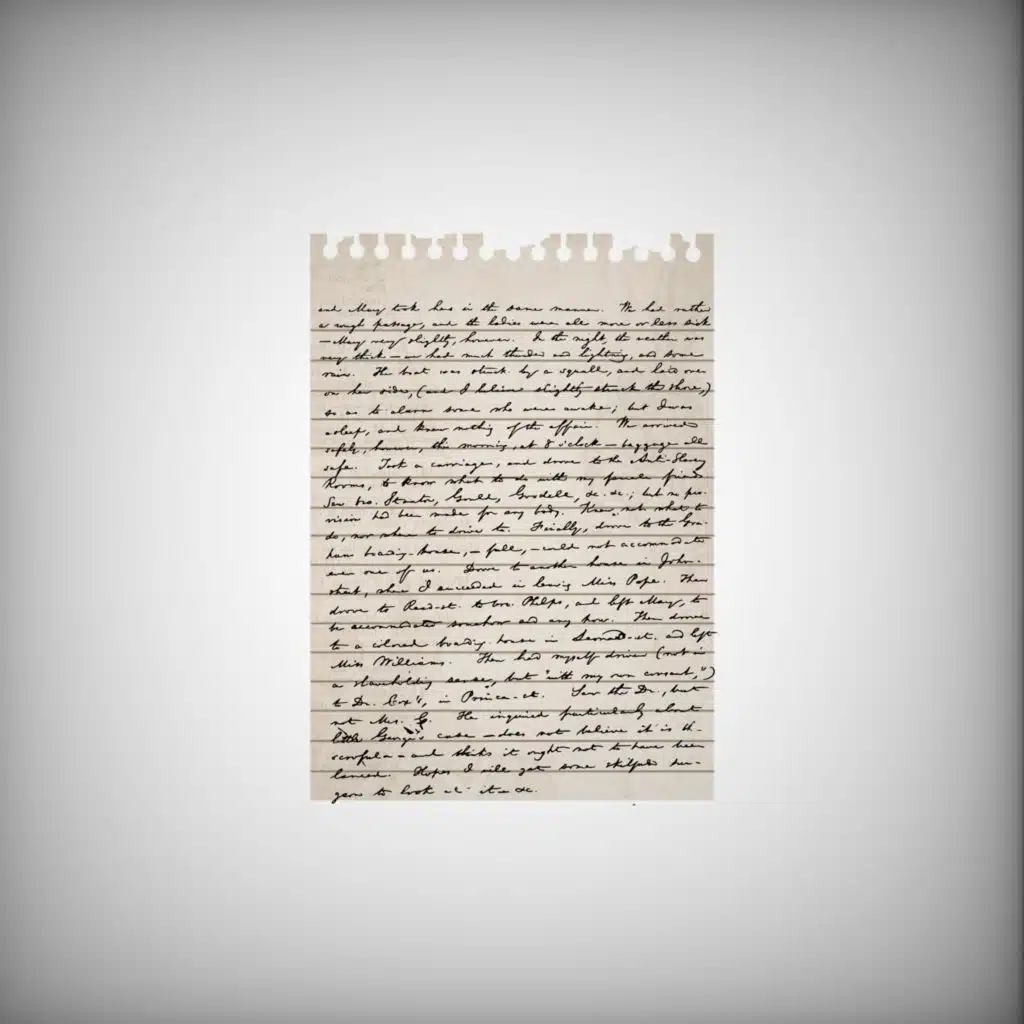 and Mary took hers in the same manner. We had rather
a rough passage, and the ladies were all more or less sick
— Mary very slightly, however. In the night, the weather was
very thick — we had much thunder and lightning, and some
rain. The boat was struck by a squall, and laid over
on her side, (and I believe slightly struck the shore,)
so as to alarm some who were awake; but I was
asleep, and knew nothing of the affair. We arrived
safely, however, this morning, at 8 o'clock — baggage all
safe. Took a carriage, and drove to the Anti-Slavery
Rooms, to know what to do with my female friends.
Saw bro. Stanton, Gould, Goodell, &c. &c.; but no pro-
vision had been made for any body. Knew not what to
do, nor where to drive to. Finally, drove to the Gra-
ham boarding-house, — full, — could not accommodate
even one of us. Drove to another house in John-
street, where I succeeded in leaving Miss Pope. Then
drove to Read-st. to bro. Phelps, and left Mary, to
be accommodated somehow and any how. Then drove
to a colored boarding-house in Leonard-st. and left
Miss Williams. Then had myself driven (not in
a slaveholding sense, but "with my own consent,")
to Dr. Cox's, in Prince-st. Saw the Dr., but
not Mrs. C. He inquired particularly about
little George's case — does not believe it is
scrofula — and thinks it ought not to have been
lanced. Hopes I will get some skilful sur-
geon to look at it &c.